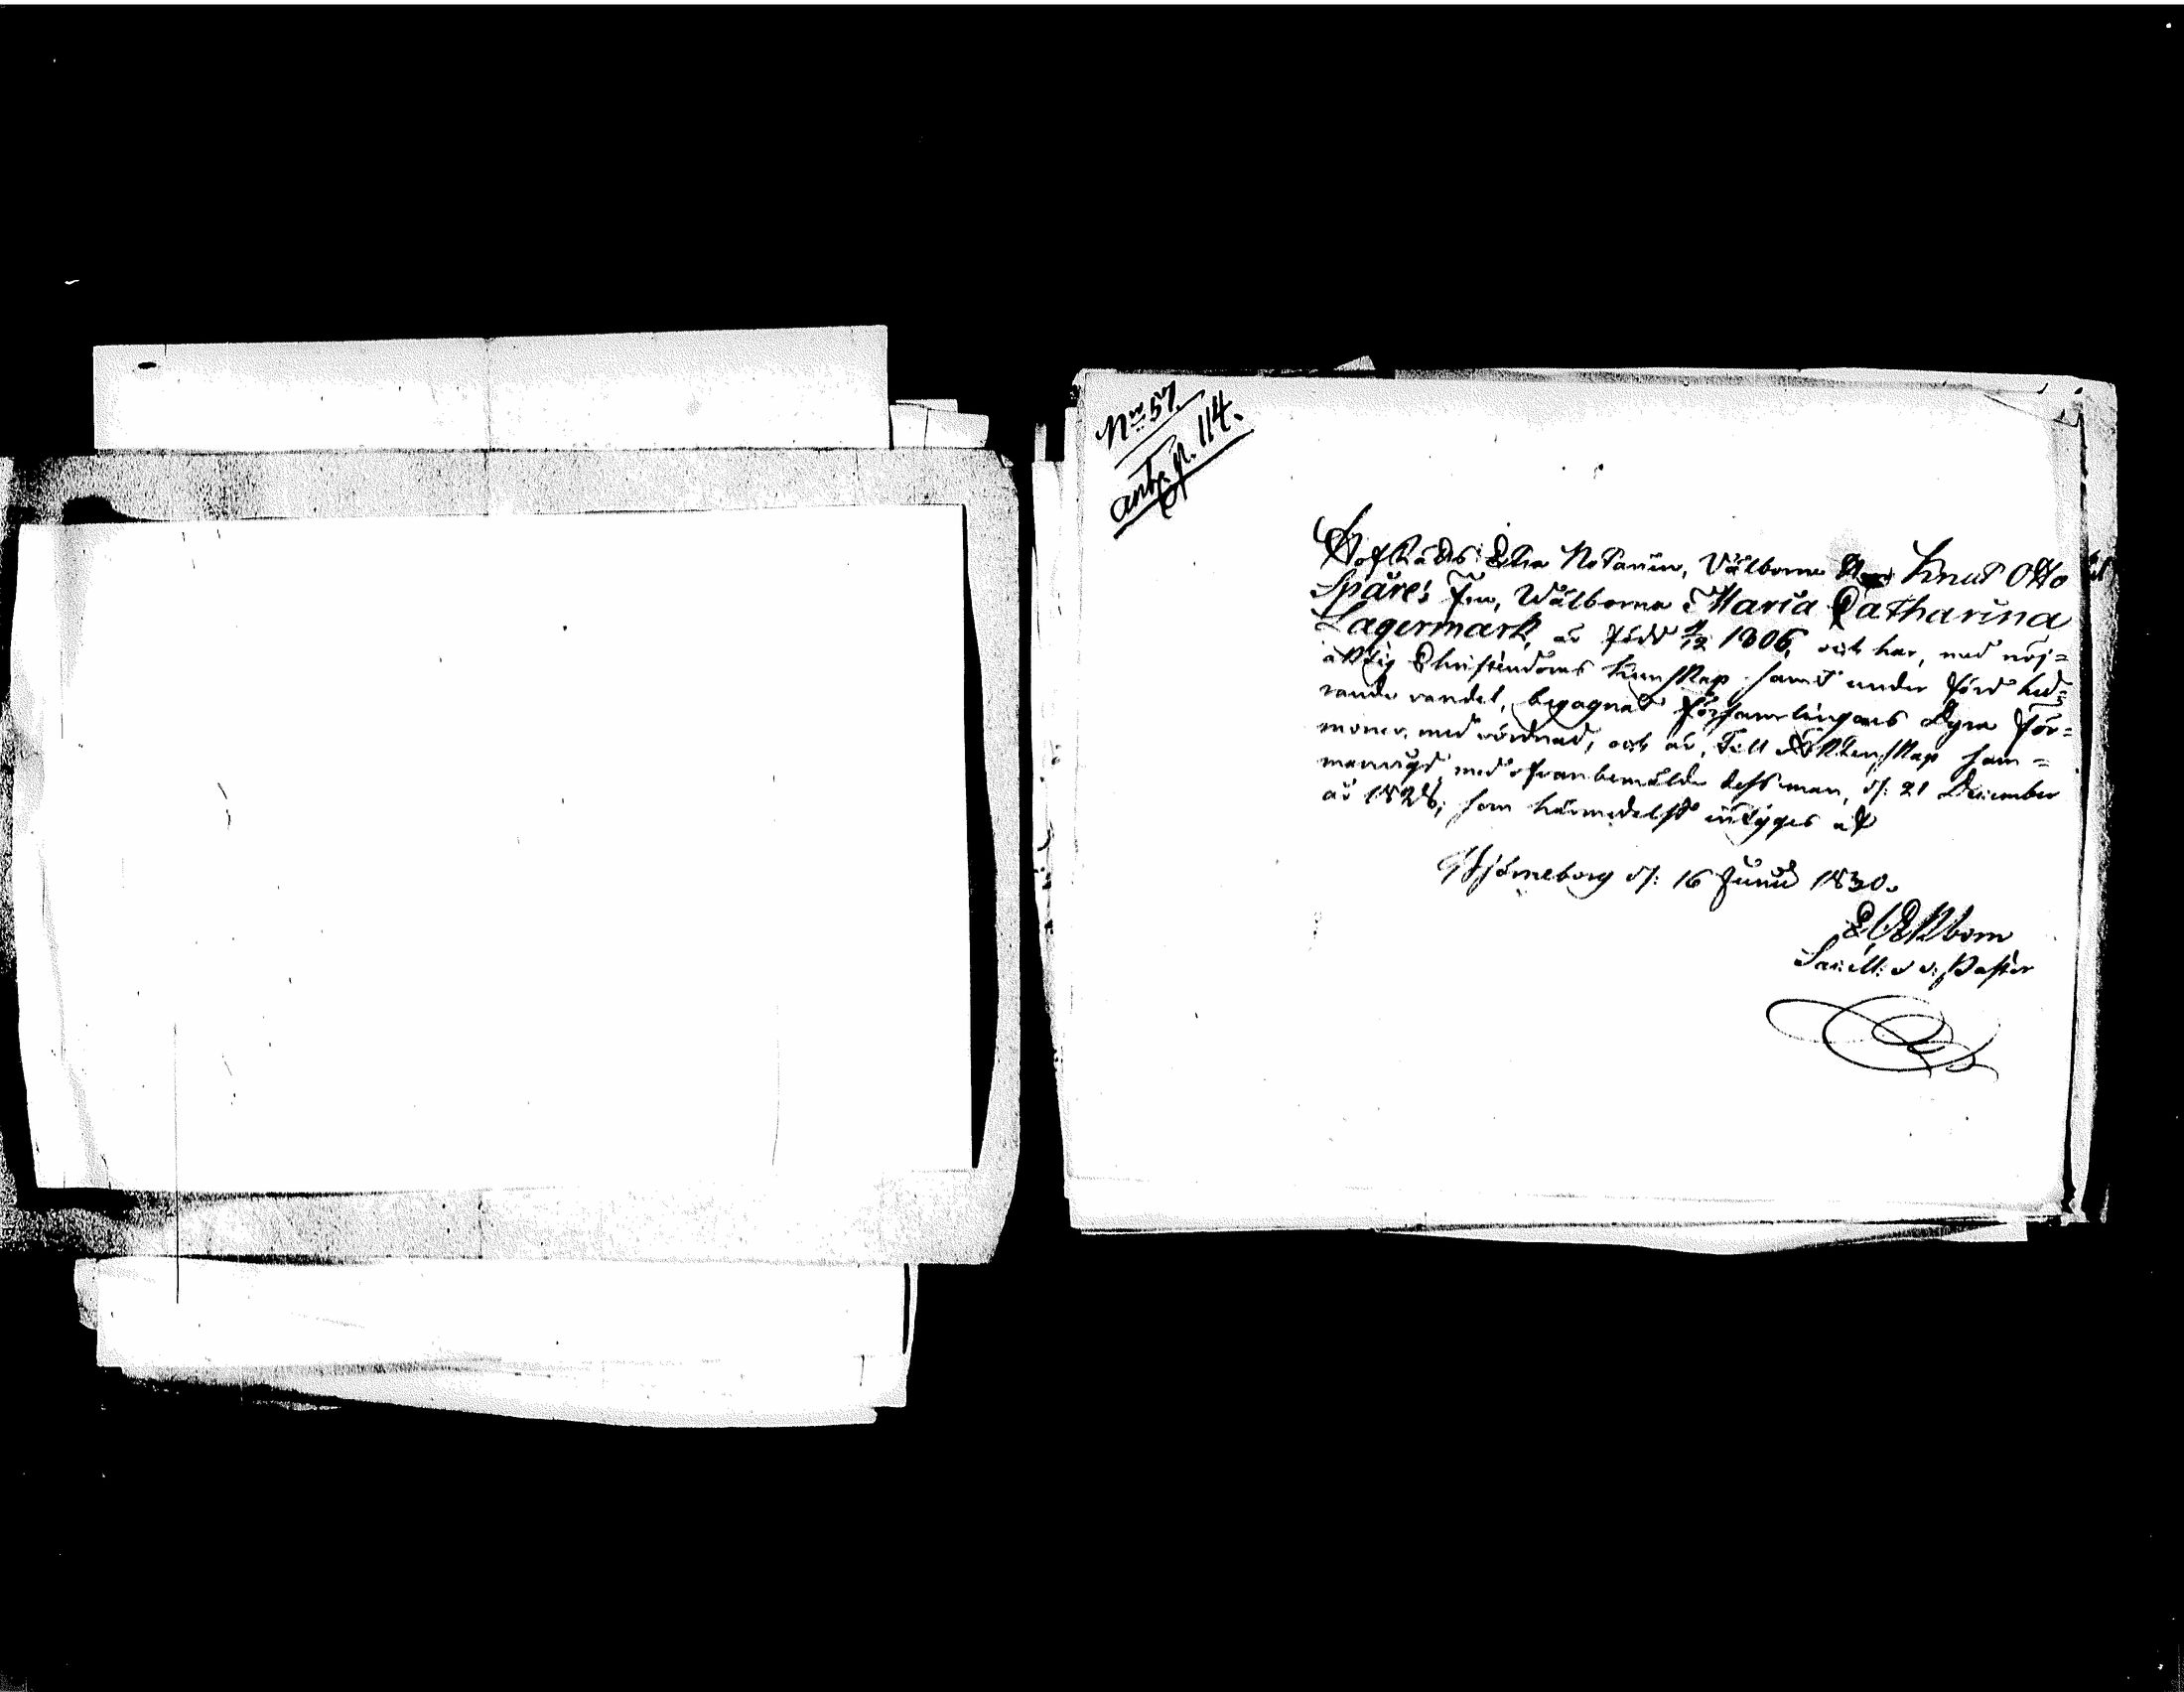 No 57.
ant. p. 114.
HofRätts Extra Notarien, Välborne Knut Otto
Spåre's Fru, Wälborna Maria Catharina
Lagermark, är född 12 1806, och har, med nöj-
aktig Christendoms Kunskap samt under förd hed-
rande vandel, begagnat församlingens Dyra för-
moner med vördnad, och är, till Äktenskap sam-
manvigd med ofvanbemälde dess man, d: 21 December
år 1828; som härmedelst intygas af
Björneborg d: 16 Junii 1830.
Ekbom
Sacell: o v: Pastor